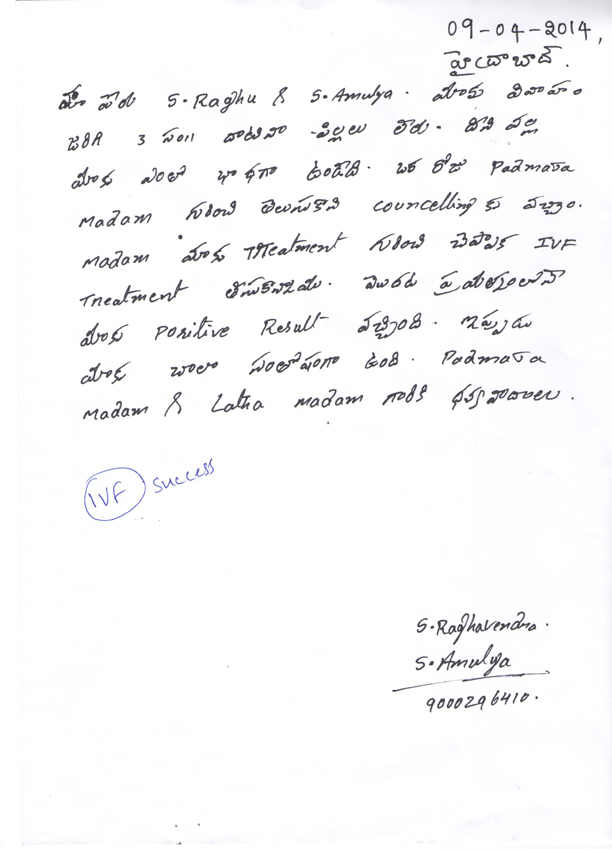 09-04-2014,
హైద్రాబాద్.
మా పేరు S.Raghu & S.Amulya. మాకు వివాహం
జరిగి 3 సం॥ దాటినా పిల్లలు లేరు. దీని వల్ల
మాకు ఎంతో బాధగా ఉండేది. ఒక రోజు Padmaja
Madam గురించి తెలుసుకొని councelling కు వచ్చాం.
Madam మాకు Treatment గురించి చెప్పాక IVF
Treatment తీసుకొన్నాము. మొదటి ప్రయత్నంలోనే
మాకు Positive Result వచ్చింది. ఇప్పుడు
మాకు చాలా సంతోషంగా ఉంది. Padmaja
Madam & Latha madam గారికి ధన్యవాదాలు.
IVF success
S.Raghavendra.
S.Amulya
9000296410.